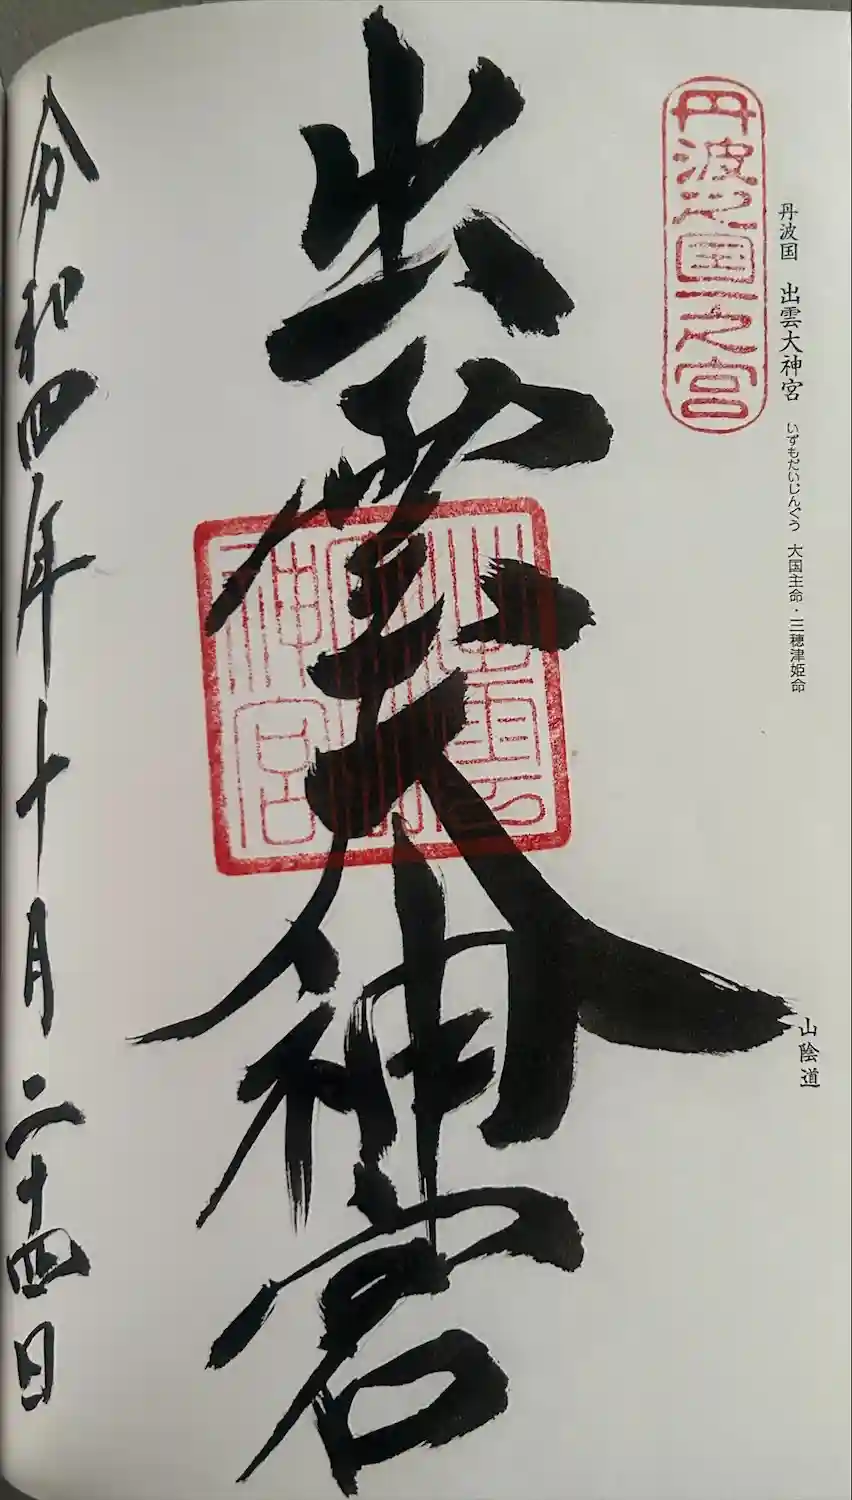 丹波国 出雲大神宮 いずもだいじんぐう 大国主命・三穂津姫命
山陰道
丹波之国一之宮
出雲大神宮
出雲大神宮
令和四年十月二十四日